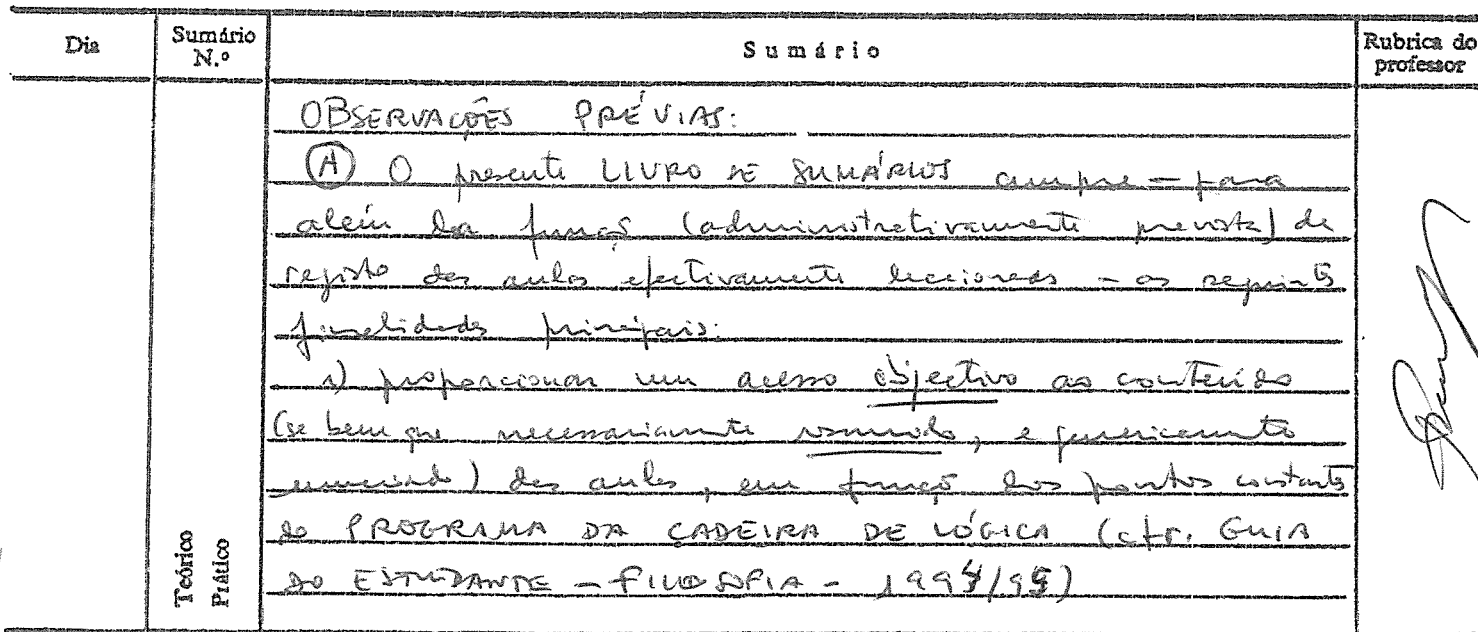 Dia
Sumário N.º
Sumário
Rubrica do professor
OBSERVAÇÕES PRÉVIAS:
(A) O presente LIVRO DE SUMÁRIOS cumpre – para
além da função (administrativamente prevista) de
registo das aulas efectivamente leccionadas – as seguintes
finalidades principais:
1) proporcionar um acesso objectivo ao conteúdo
(se bem que necessariamente resumido, e genericamente
enunciado) das aulas, em função dos pontos constantes
do PROGRAMA DA CADEIRA DE LÓGICA (cfr. GUIA
DO ESTUDANTE – FILOSOFIA – 1994/95)
Teórico
Prático